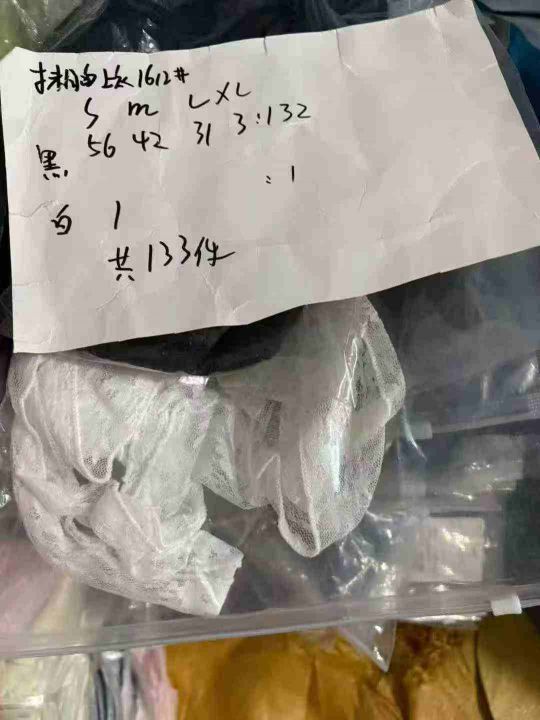 抹胸上衣1612#
S M L XL
黑 56 42 31 3:132
白 1 :1
共133件